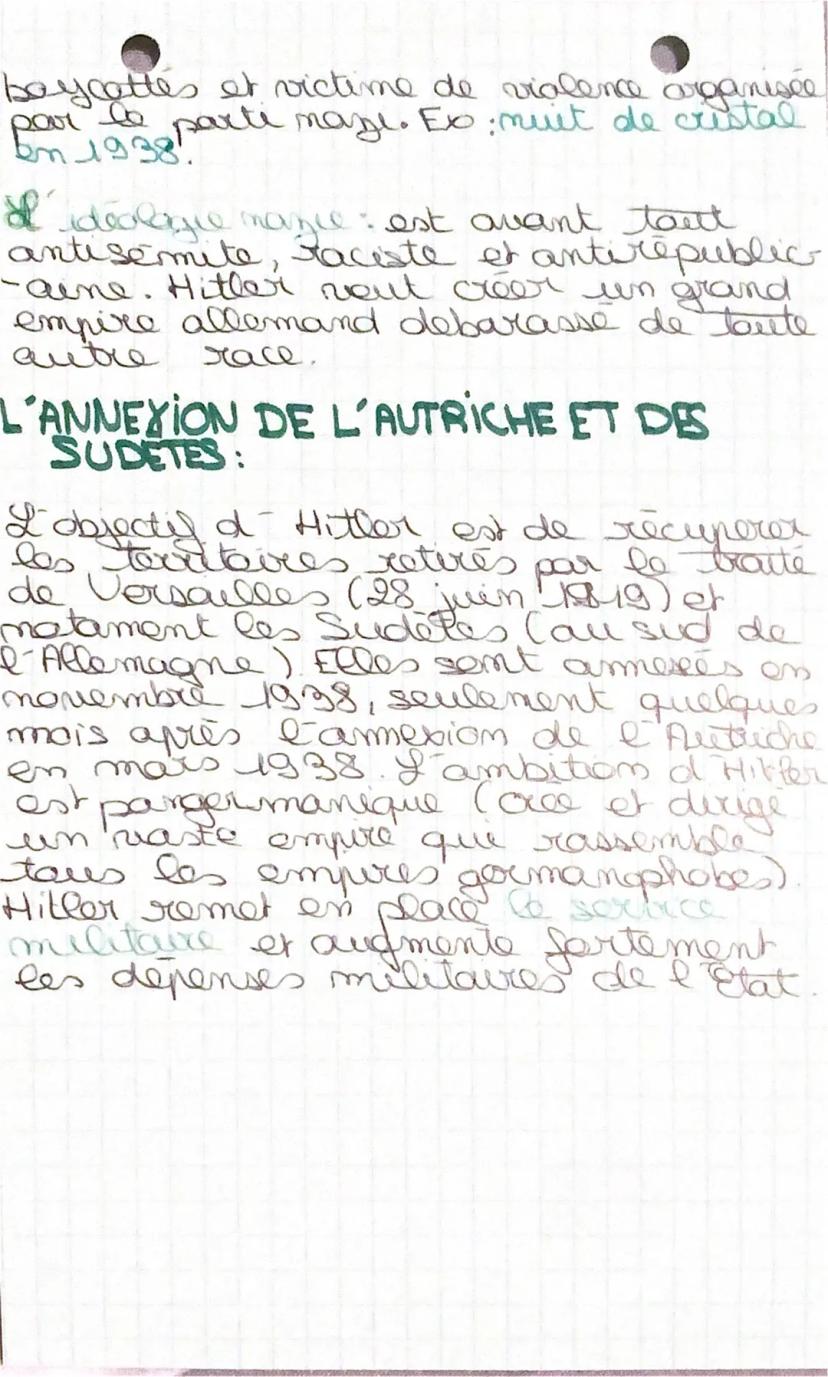 boycottés et victime de violence organisée
par le parti nazi. Ex : nuit de cristal
en 1938.
L'idéologie nazie : est avant tout
antisémite, raciste et antirépublic-
-aine. Hitler veut créer un grand
empire allemand debarassé de toute
autre race.
L'ANNEXION DE L'AUTRICHE ET DES
SUDÈTES :
L'objectif d'Hitler est de récuperer
les territoires retirés par le traité
de Versailles (28 juin 1919) et
notament les Sudètes (au sud de
l'Allemagne). Elles sont annexées en
novembre 1938, seulement quelques
mois après l'annexion de l'Autriche
en mars 1938. L'ambition d'Hitler
est pangermanique (crée et dirigé
un vaste empire qui rassemble
tous les empires germanophobes).
Hitler remet en place le service
militaire et augmente fortement
les dépenses militaires de l'État.